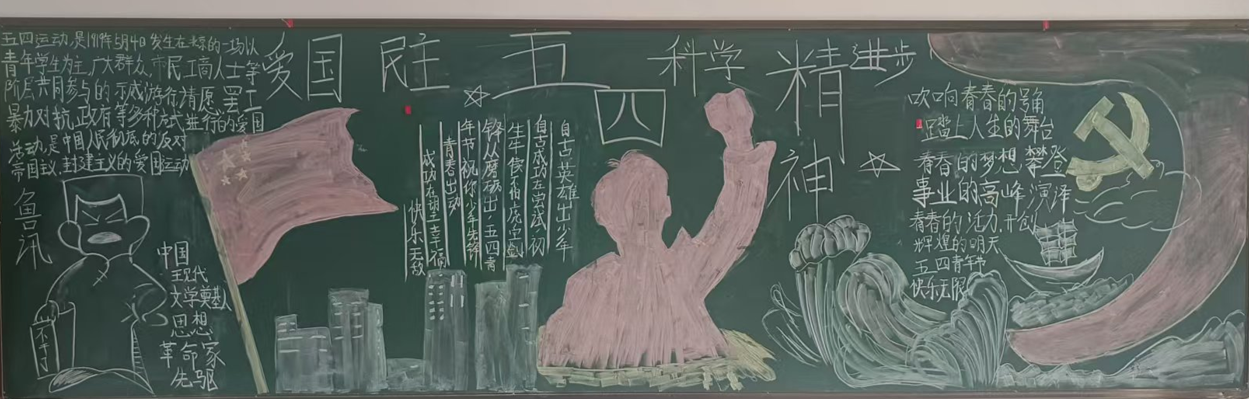 五四运动是1919年5月4日发生在北京的一场以
青年学生为主,广大群众,市民工商人士等
阶层共同参与的示威游行,请愿,罢工
暴力对抗政府等多种方式进行的爱国
运动,是中国人民彻底的反对
帝国 封建主义的爱国运动
鲁讯
中国
现代
文学奠基人
思想
革命家
先驱
爱国 民主 五四 科学 精神 进步
自古英雄出少年
自古成功在尝试,初
生牛犊不怕虎,宝剑
锋从磨砺出,五四青
年节祝你少年先锋
青春出动
成功在望幸福
快乐无数
吹响青春的号角
踏上人生的舞台
青春的梦想 攀登
事业的高峰 演译
青春的活力,开创
辉煌的明天
五四青年节
快乐无限